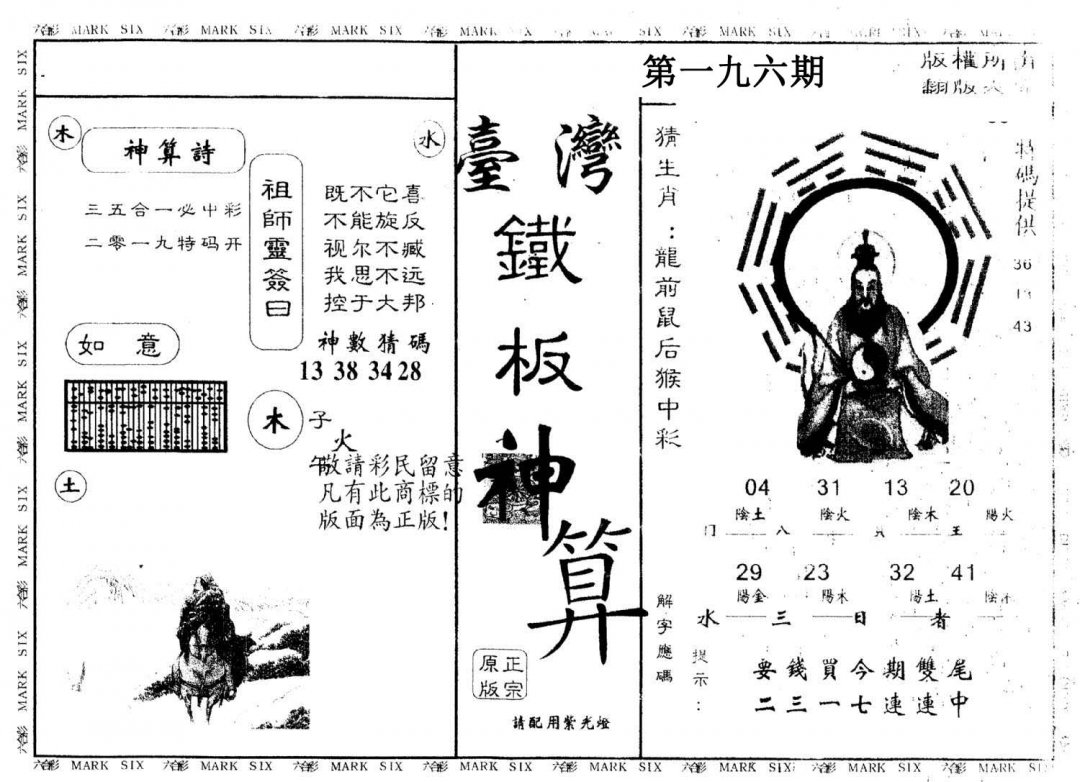 六彩 MARK SIX 六彩 MARK SIX 六彩 MARK SIX 六彩 MARK SIX
第一九六期
版權所有
翻版
木
水
神算詩
三五合一必中彩
二零一九特码开
祖師靈簽曰
既不它喜
不能旋反
视尔不臧
我思不远
控于大邦
神數猜碼
13 38 34 28
如意
木
子
火
午
敬請彩民留意
凡有此商標的
版面為正版!
土
臺灣
鐵板神算
正宗
原版
請配用紫光燈
猜生肖:龍前鼠后猴中彩
特碼提供
36
43
04 31 13 20
陰土 陰火 陰木 陽火
八 王
29 23 32 41
陽金 陽木 陽土
水 三 日 者
解字應碼
提示:
要錢買今期雙尾
二三一七連連中
六彩 MARK SIX 六彩 MARK SIX 六彩 MARK SIX 六彩 MARK SIX 六彩 MARK SIX 六彩 MARK SIX 六彩 MARK SIX 六彩 MARK SIX